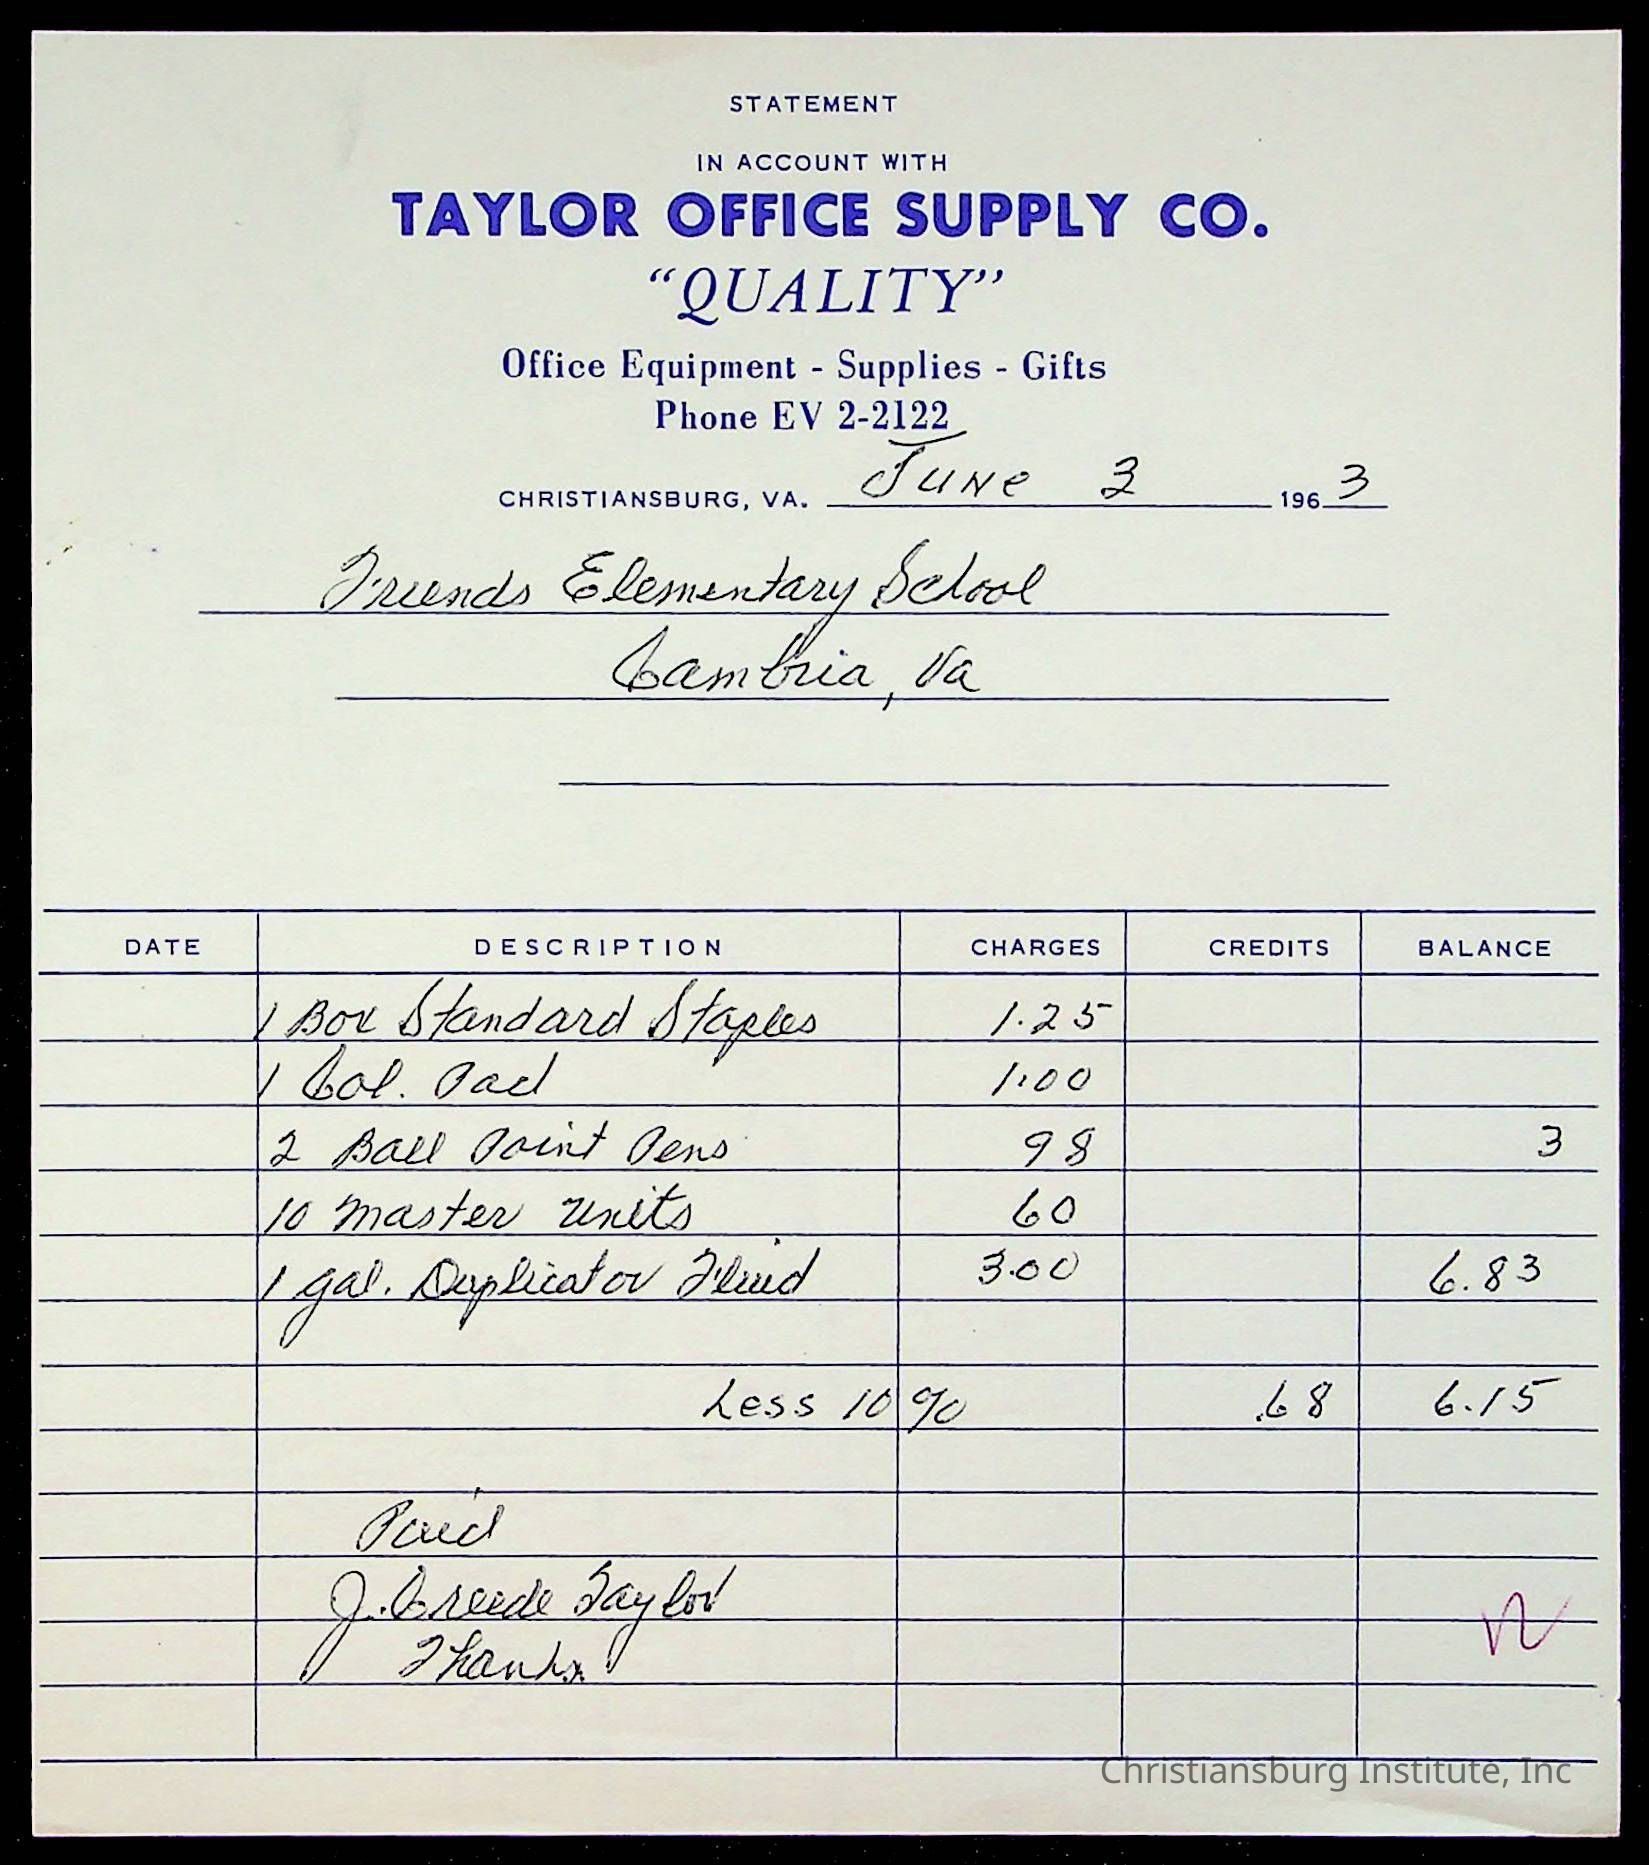 STATEMENT
IN ACCOUNT WITH
TAYLOR OFFICE SUPPLY CO.
“QUALITY”
Office Equipment - Supplies - Gifts
Phone EV 2-2122
CHRISTIANSBURG, VA. June 3 1963
Friends Elementary School
Cambria, Va
DATE DESCRIPTION CHARGES CREDITS BALANCE
1 Box Standard Staples 1.25
1 Col. Pad 1.00
2 Ball Point Pens 98 3
10 Master Units 60
1 gal. Duplicator Fluid 3.00 6.83
Less 10% .68 6.15
Paid
J. Creede Taylor
Thanks
Christiansburg Institute, Inc